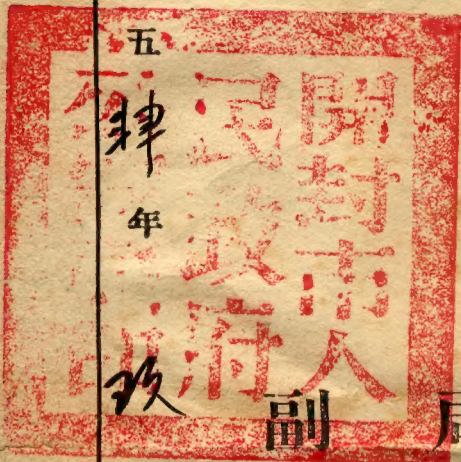 開封市人
民政府
五肆年玖
副